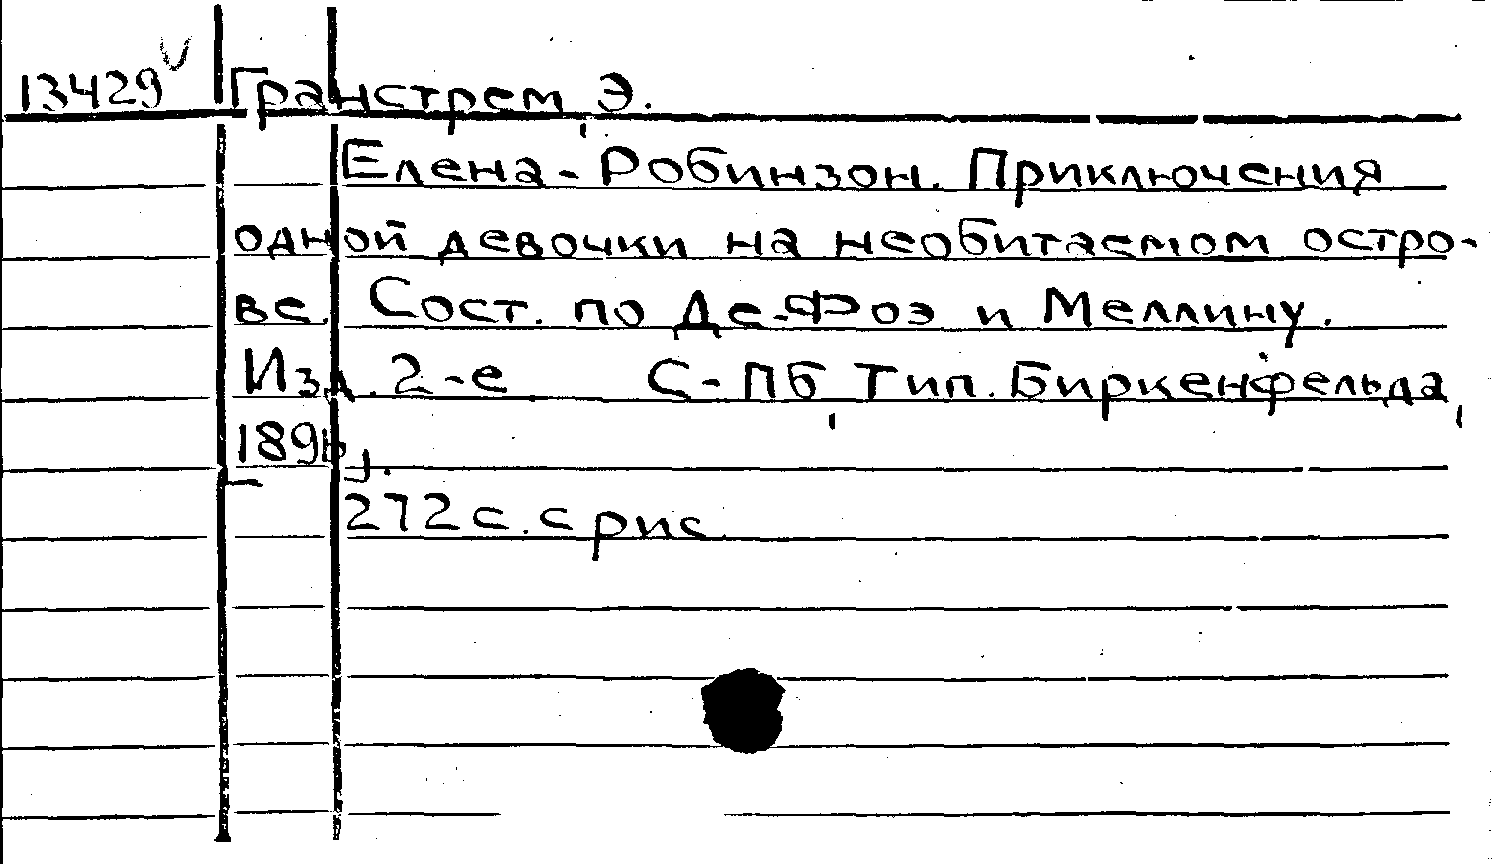 13429 Гранстрем, Э.
Елена-Робинзон. Приключения
одной девочки на необитаемом остро-
ве. Сост. по Де-Фоэ и Меллину.
Изд. 2-е С-Пб, Тип. Биркенфельда,
272 с. с рис.